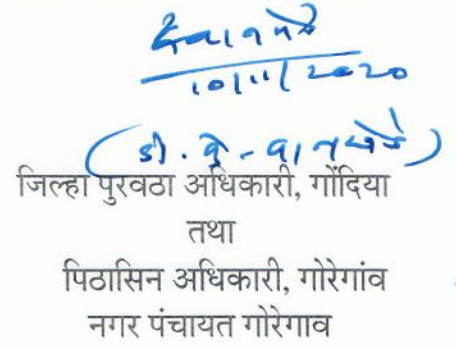 10/11/2020
(डी. के. वानखेडे)
जिल्हा पुरवठा अधिकारी, गोंदिया
तथा
पिठासिन अधिकारी, गोरेगांव
नगर पंचायत गोरेगाव